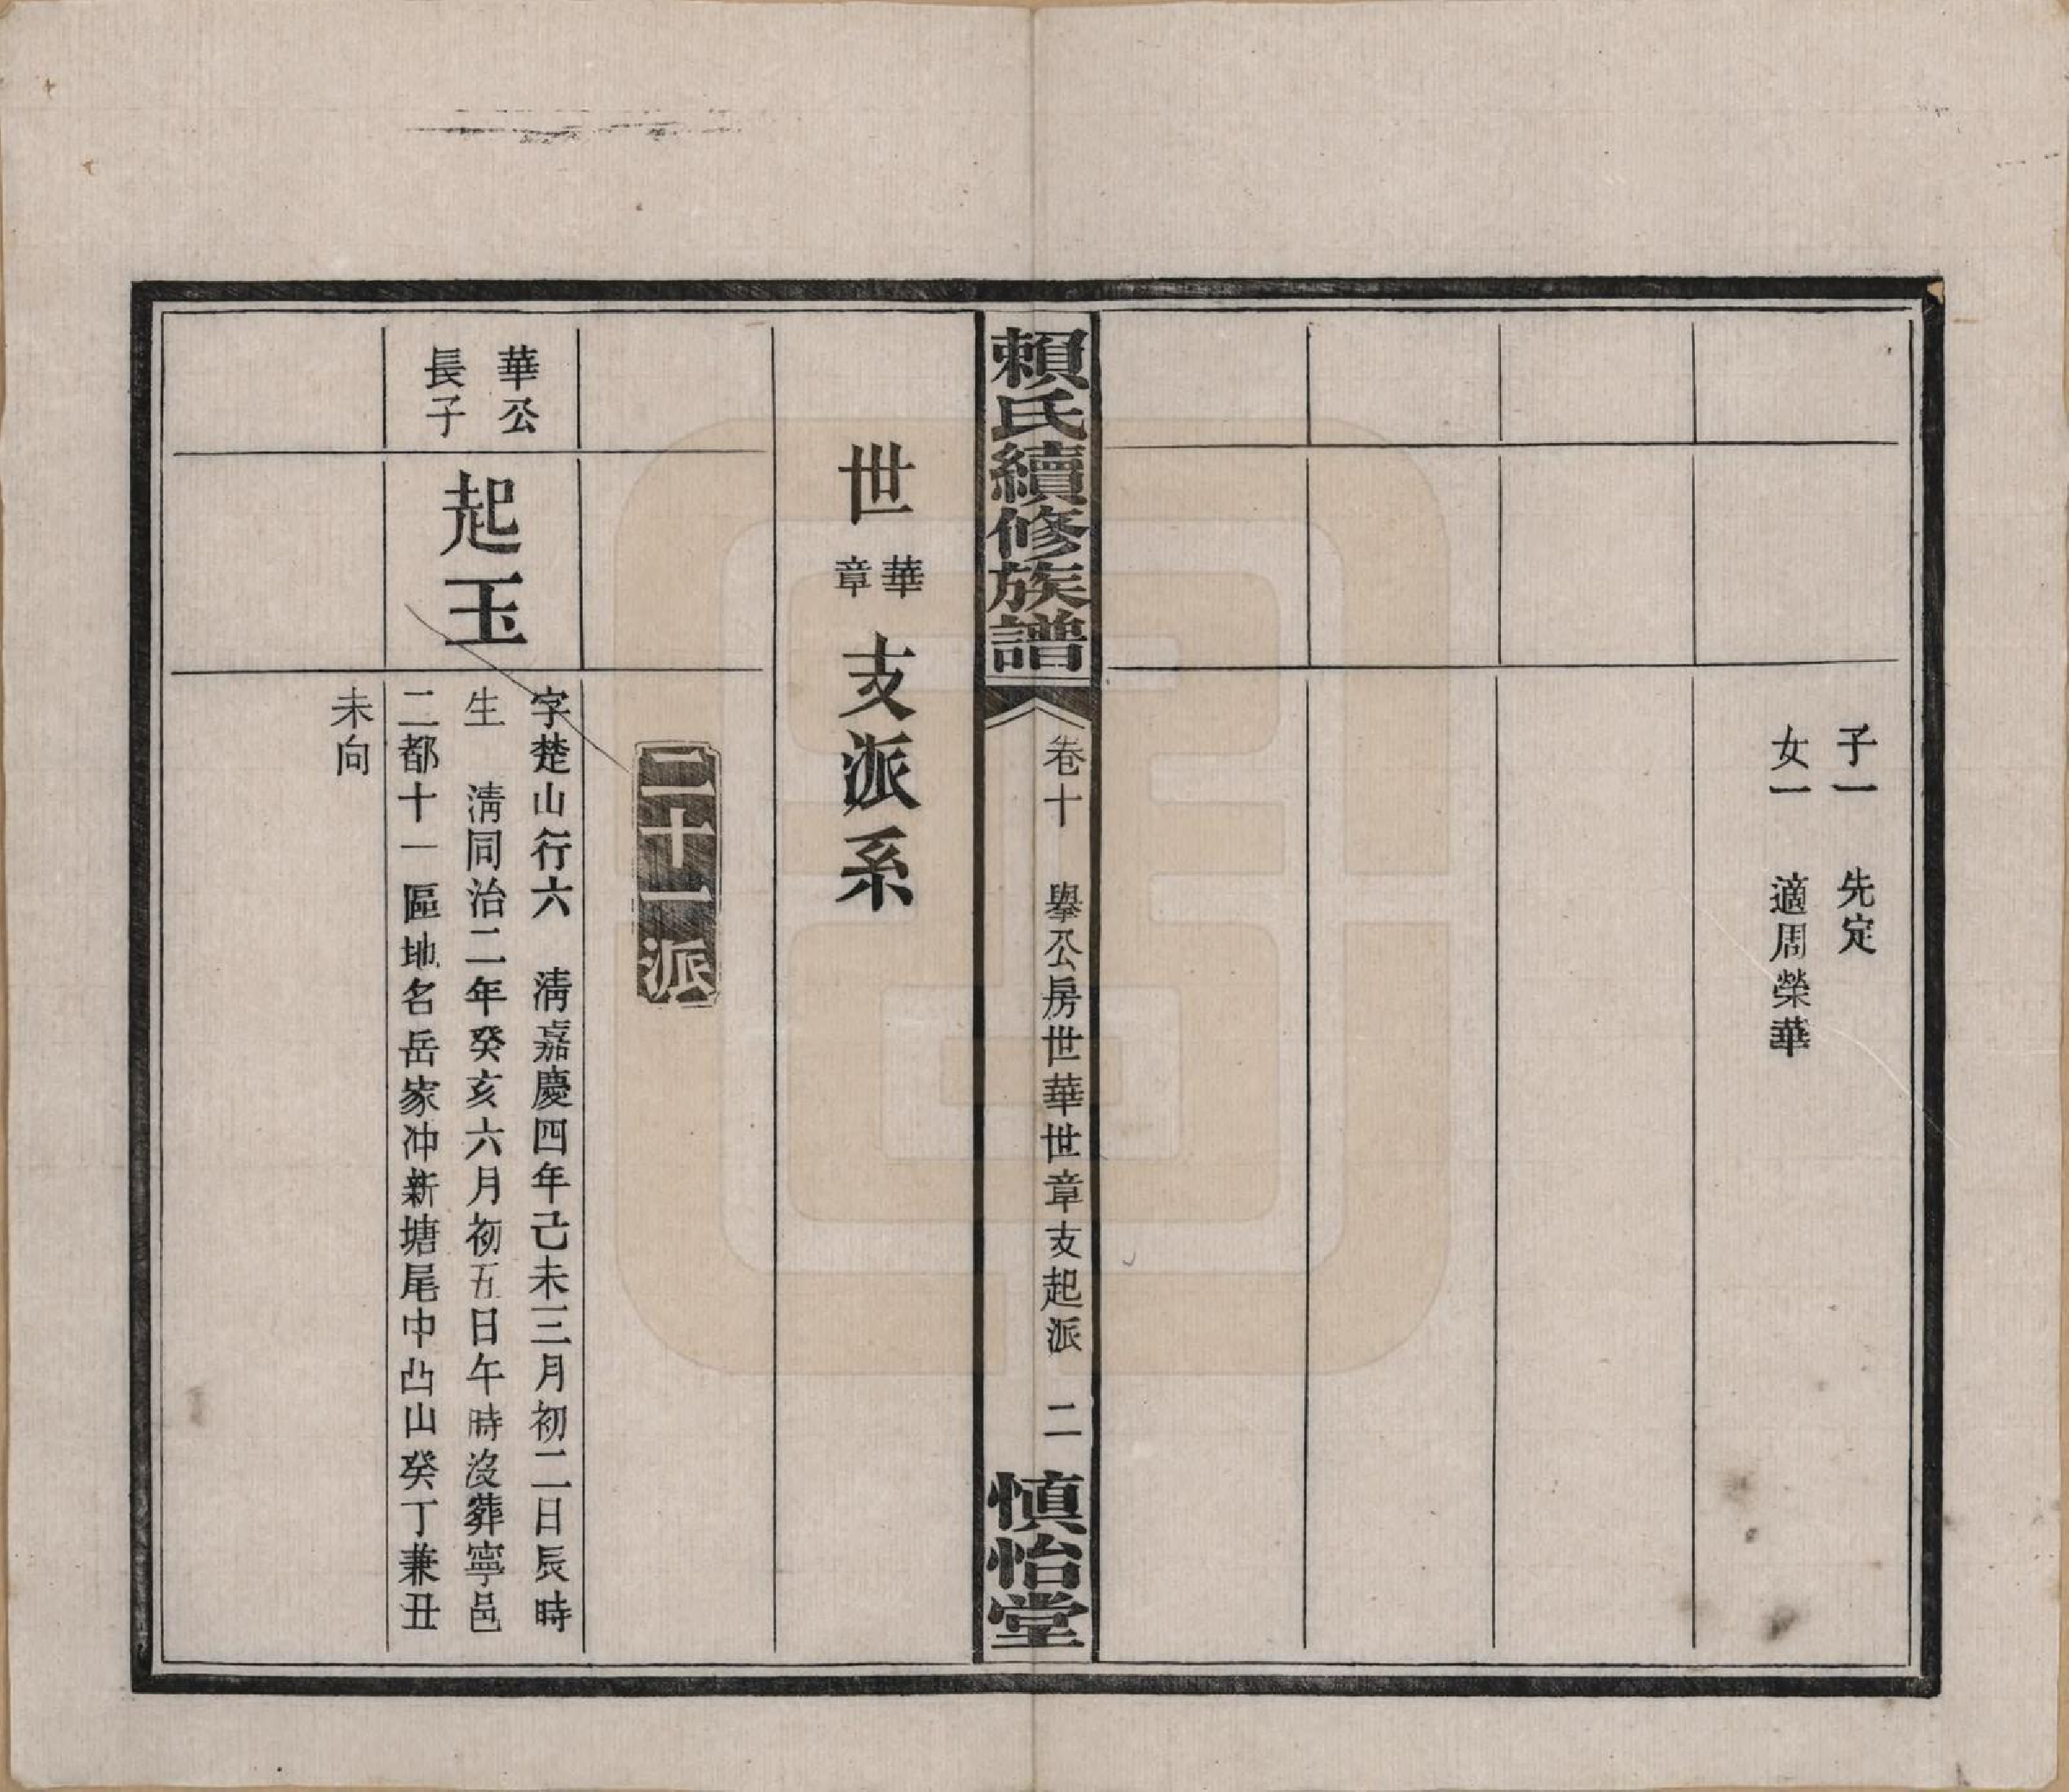 子一　先定
女一　適周榮華
賴氏續修族譜
卷十　舉公房世華世章支起派　二
慎怡堂
世華章支派系
二十一派
華公
長子
起玉
字楚山行六　清嘉慶四年己未三月初二日辰時
生　清同治二年癸亥六月初五日午時沒葬寧邑
二都十一區地名岳家冲新塘尾中凸山癸丁兼丑
未向